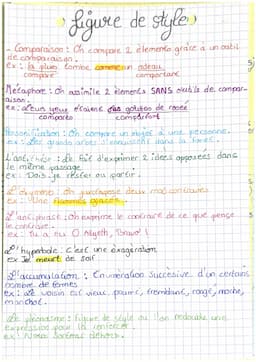 figure de style
- Comparaison : On compare 2 éléments grâce à un outil
de comparaison.
ex : la pluie tombe comme un rideau
comparé comparant
Métaphore : On assimile 2 éléments SANS outils de compar-
aison.
ex : Leurs yeux étaient des gouttes de rosée
comparés comparant
Personnification : On compare un objet à une personne.
ex : Les grands arbres s'ennuyaient dans la forêt.
L'antithèse : Le fait d'exprimer 2 idées opposées dans
le même passage.
ex : Dois je rester ou partir.
L'oxymore : On juxtapose deux mots contraires
ex : Une flammes glacée.
L'antiphrase : On exprime le contraire de ce que pense
le contraire.
ex : tu a eu 0 , Bravo !
L'hyperbole : C'est une exagération
ex Je meurt de soif
L'accumulation : Énumération succésive d'un certains
nombre de termes
ex : Le voisin est vieux, pourri, tremblant, rongé, moche,
manchot.
Le pléonasme : figure de style ou l'on redouble une
expression pour la renforcer.
ex : Nous sortons dehors.